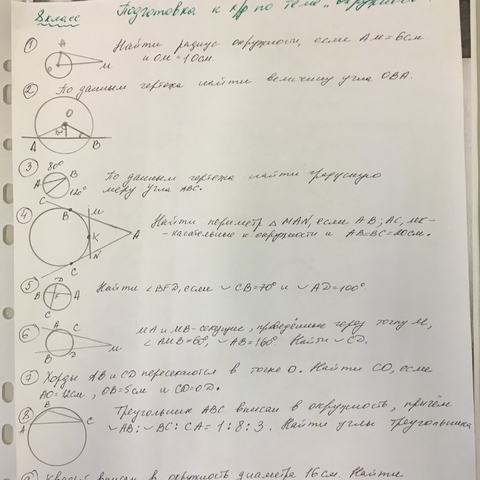 8 класс Подготовка к к/р по теме "окружность".
① Найти радиус окружности, если AM=6см
и OM=10см.
A
O
M
② По данным чертежа найти величину угла OBA.
O
A B
③ 80° По данным чертежа найти градусную
меру угла ABC.
A B
120°
C
④ Найти периметр △ MAN, если AB; AC, MN-
-касательные к окружности и AB=BC=20см.
B M
K A
N
C
⑤ Найти ∠BFD, если ◡CB=70° и ◡AD=100°
D
B F A
C
⑥ MA и MB-секущие, проведённые через точку M,
∠AMB=60°, ◡AB=160° Найти ◡CD.
A C
B D M
⑦ Хорды AB и CD пересекаются в точке O. Найти CO, если
AO=12см, OB=5см и CO=OD.
⑧ Треугольник ABC вписан в окружность, причём
◡AB:◡BC:CA=1:8:3. Найти углы треугольника
B
A C
Квадрат вписан в окружность диаметра 16см. Найти